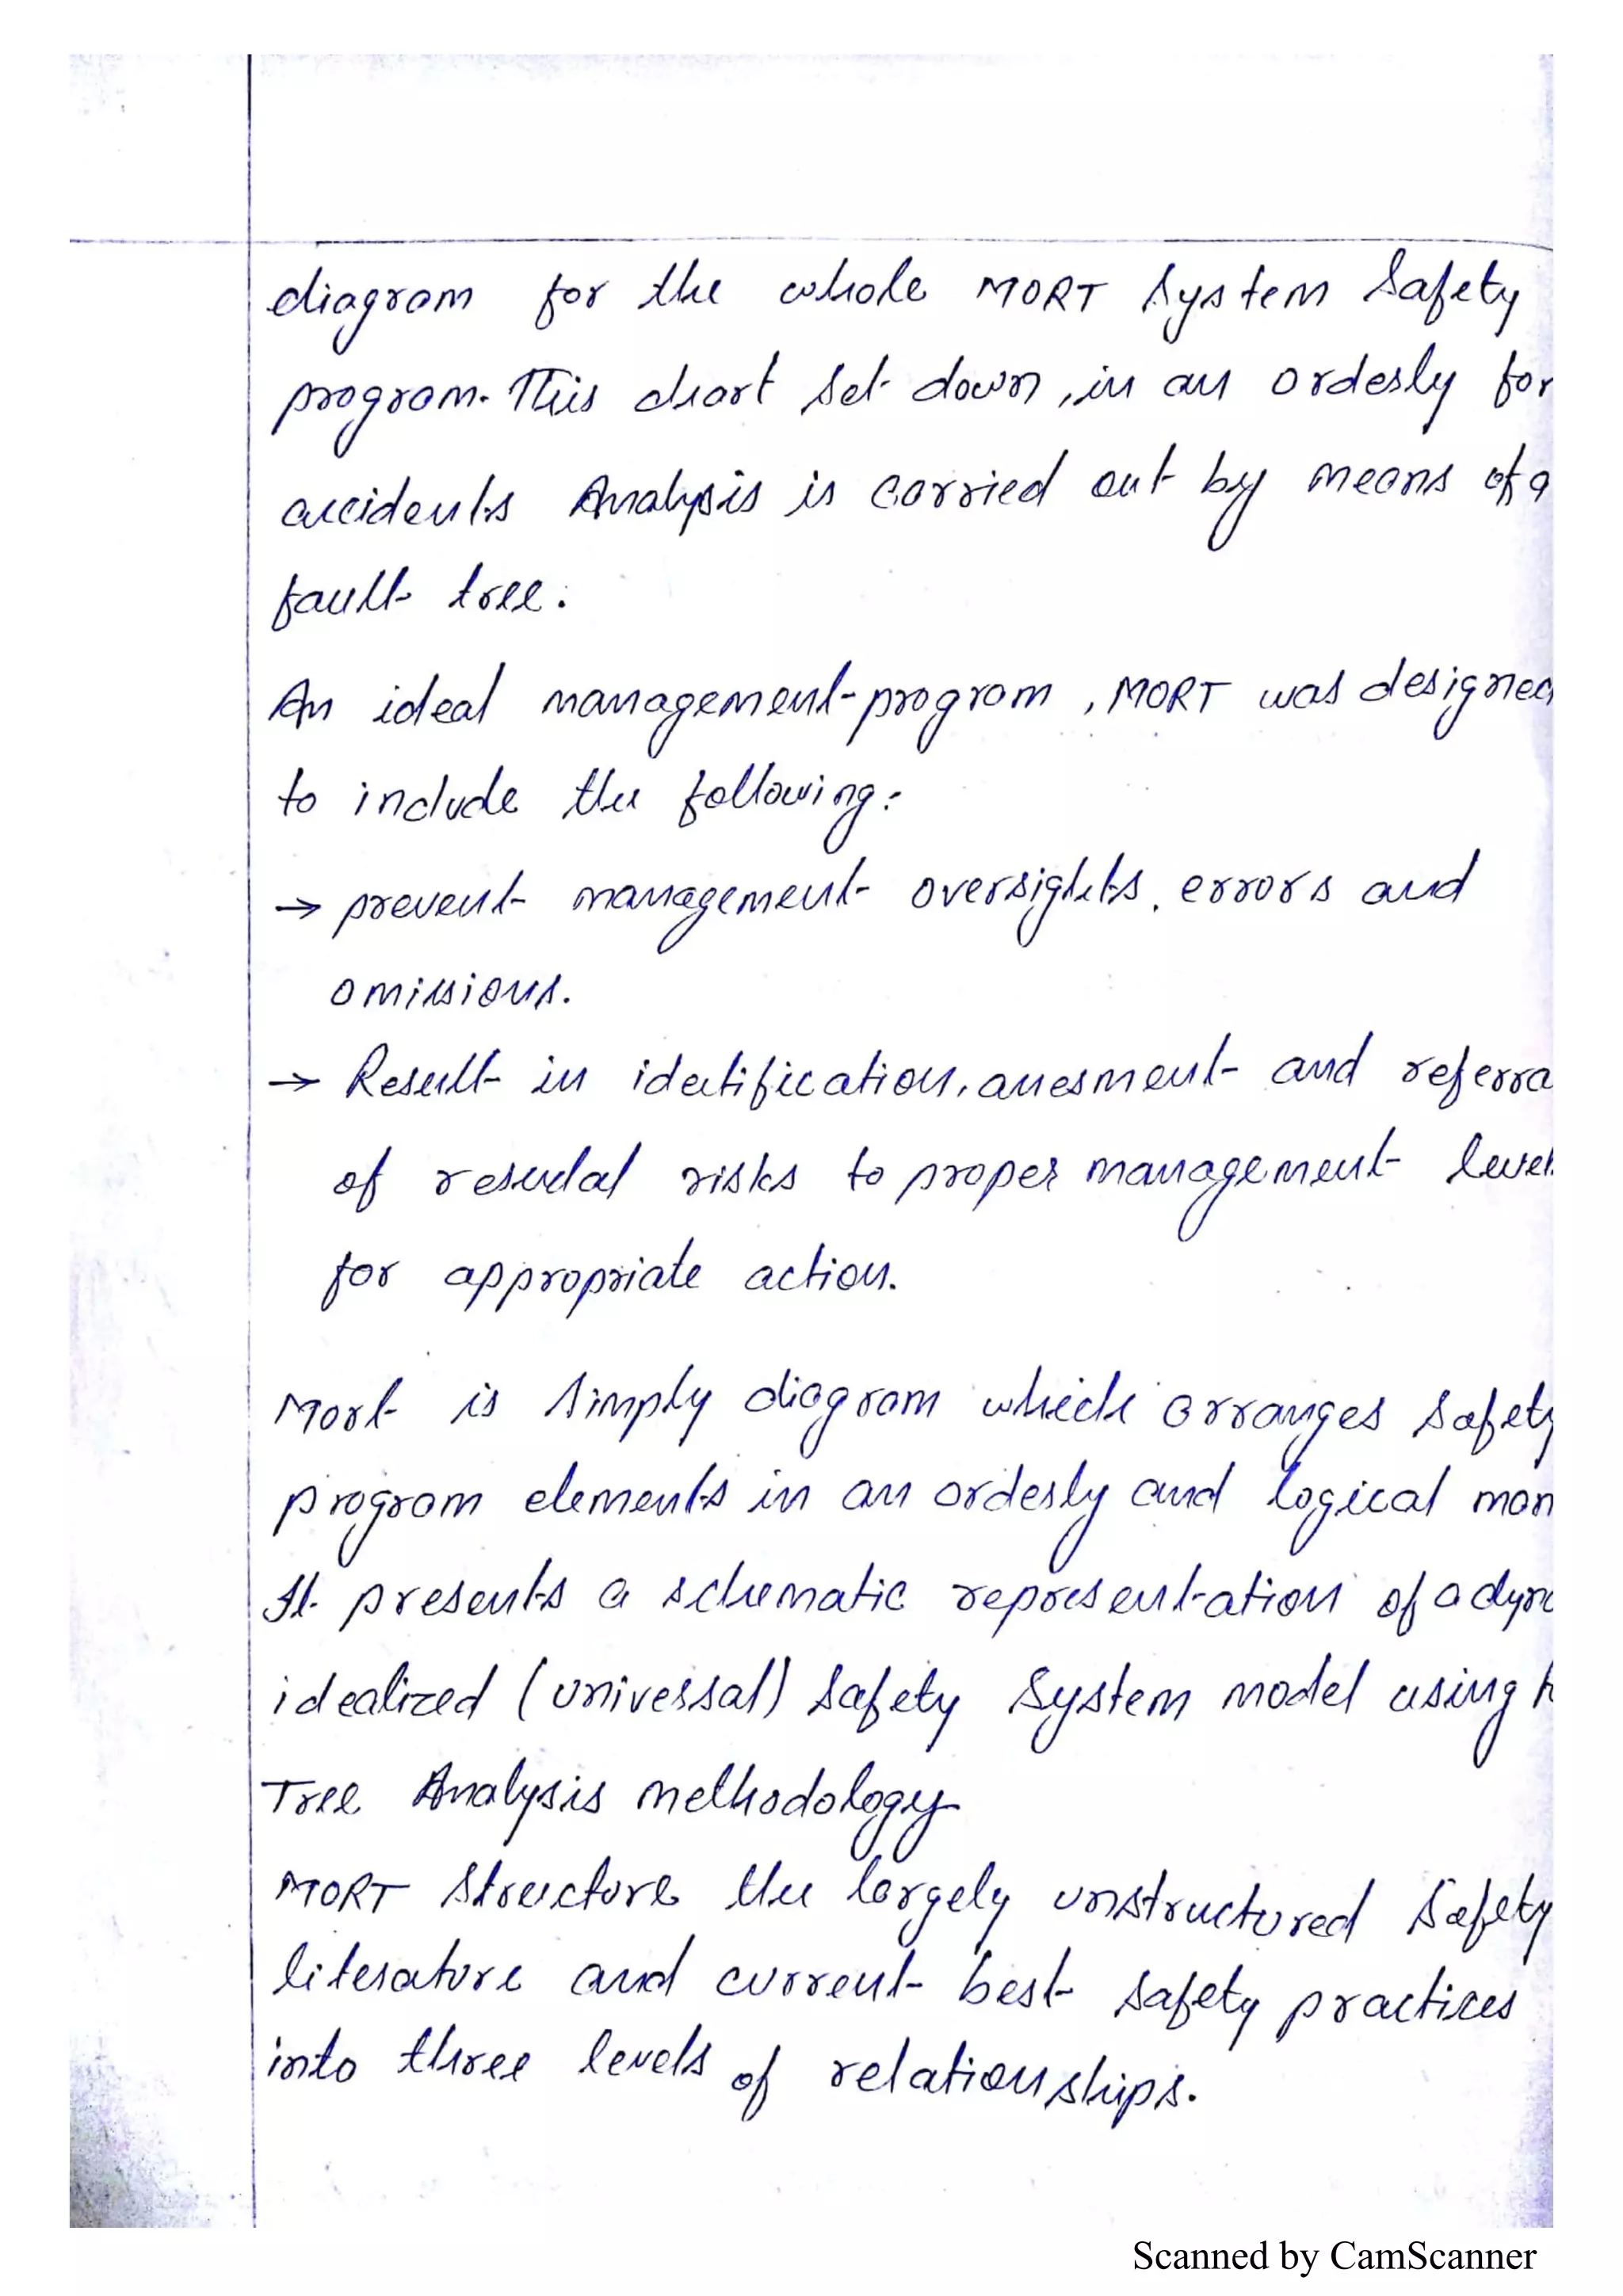 diagram for the whole MORT System Safety
program. This chart set down, in an orderly for
accidents Analysis is carried out by means of a
fault tree.
An ideal management program, MORT was designed
to include the following:
→ prevent management oversights, errors and
omissions.
→ Result in idetification, assesment and referra
of resudal risks to proper management level
for appropriate action.
Mort is simply diagram which arranges safety
program elements in an orderly and logical man
It presents a schematic representation of a dyna
idealized (universal) safety system model using
Tree Analysis methodology
MORT structure the largely unstructured safety
literature and current best safety practices
into three levels of relationships.
Scanned by CamScanner